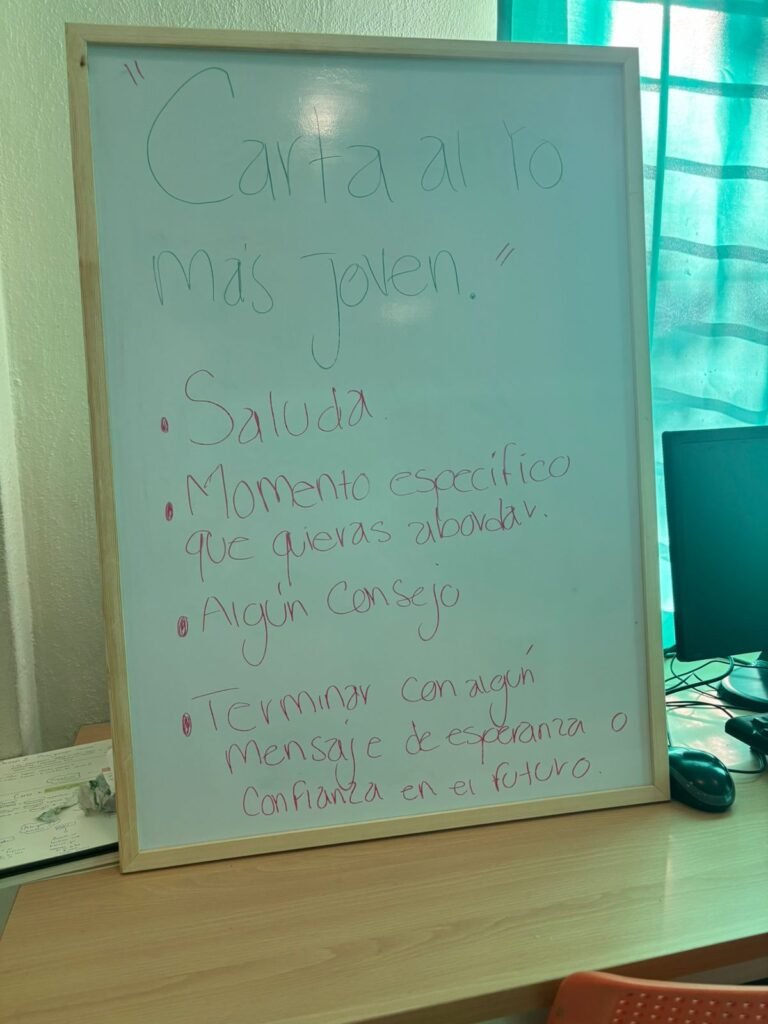 "Carta al Yo
más joven."
• Saluda.
• Momento específico
que quieras abordar.
• Algún Consejo
• Terminar con algún
mensaje de esperanza o
confianza en el futuro.